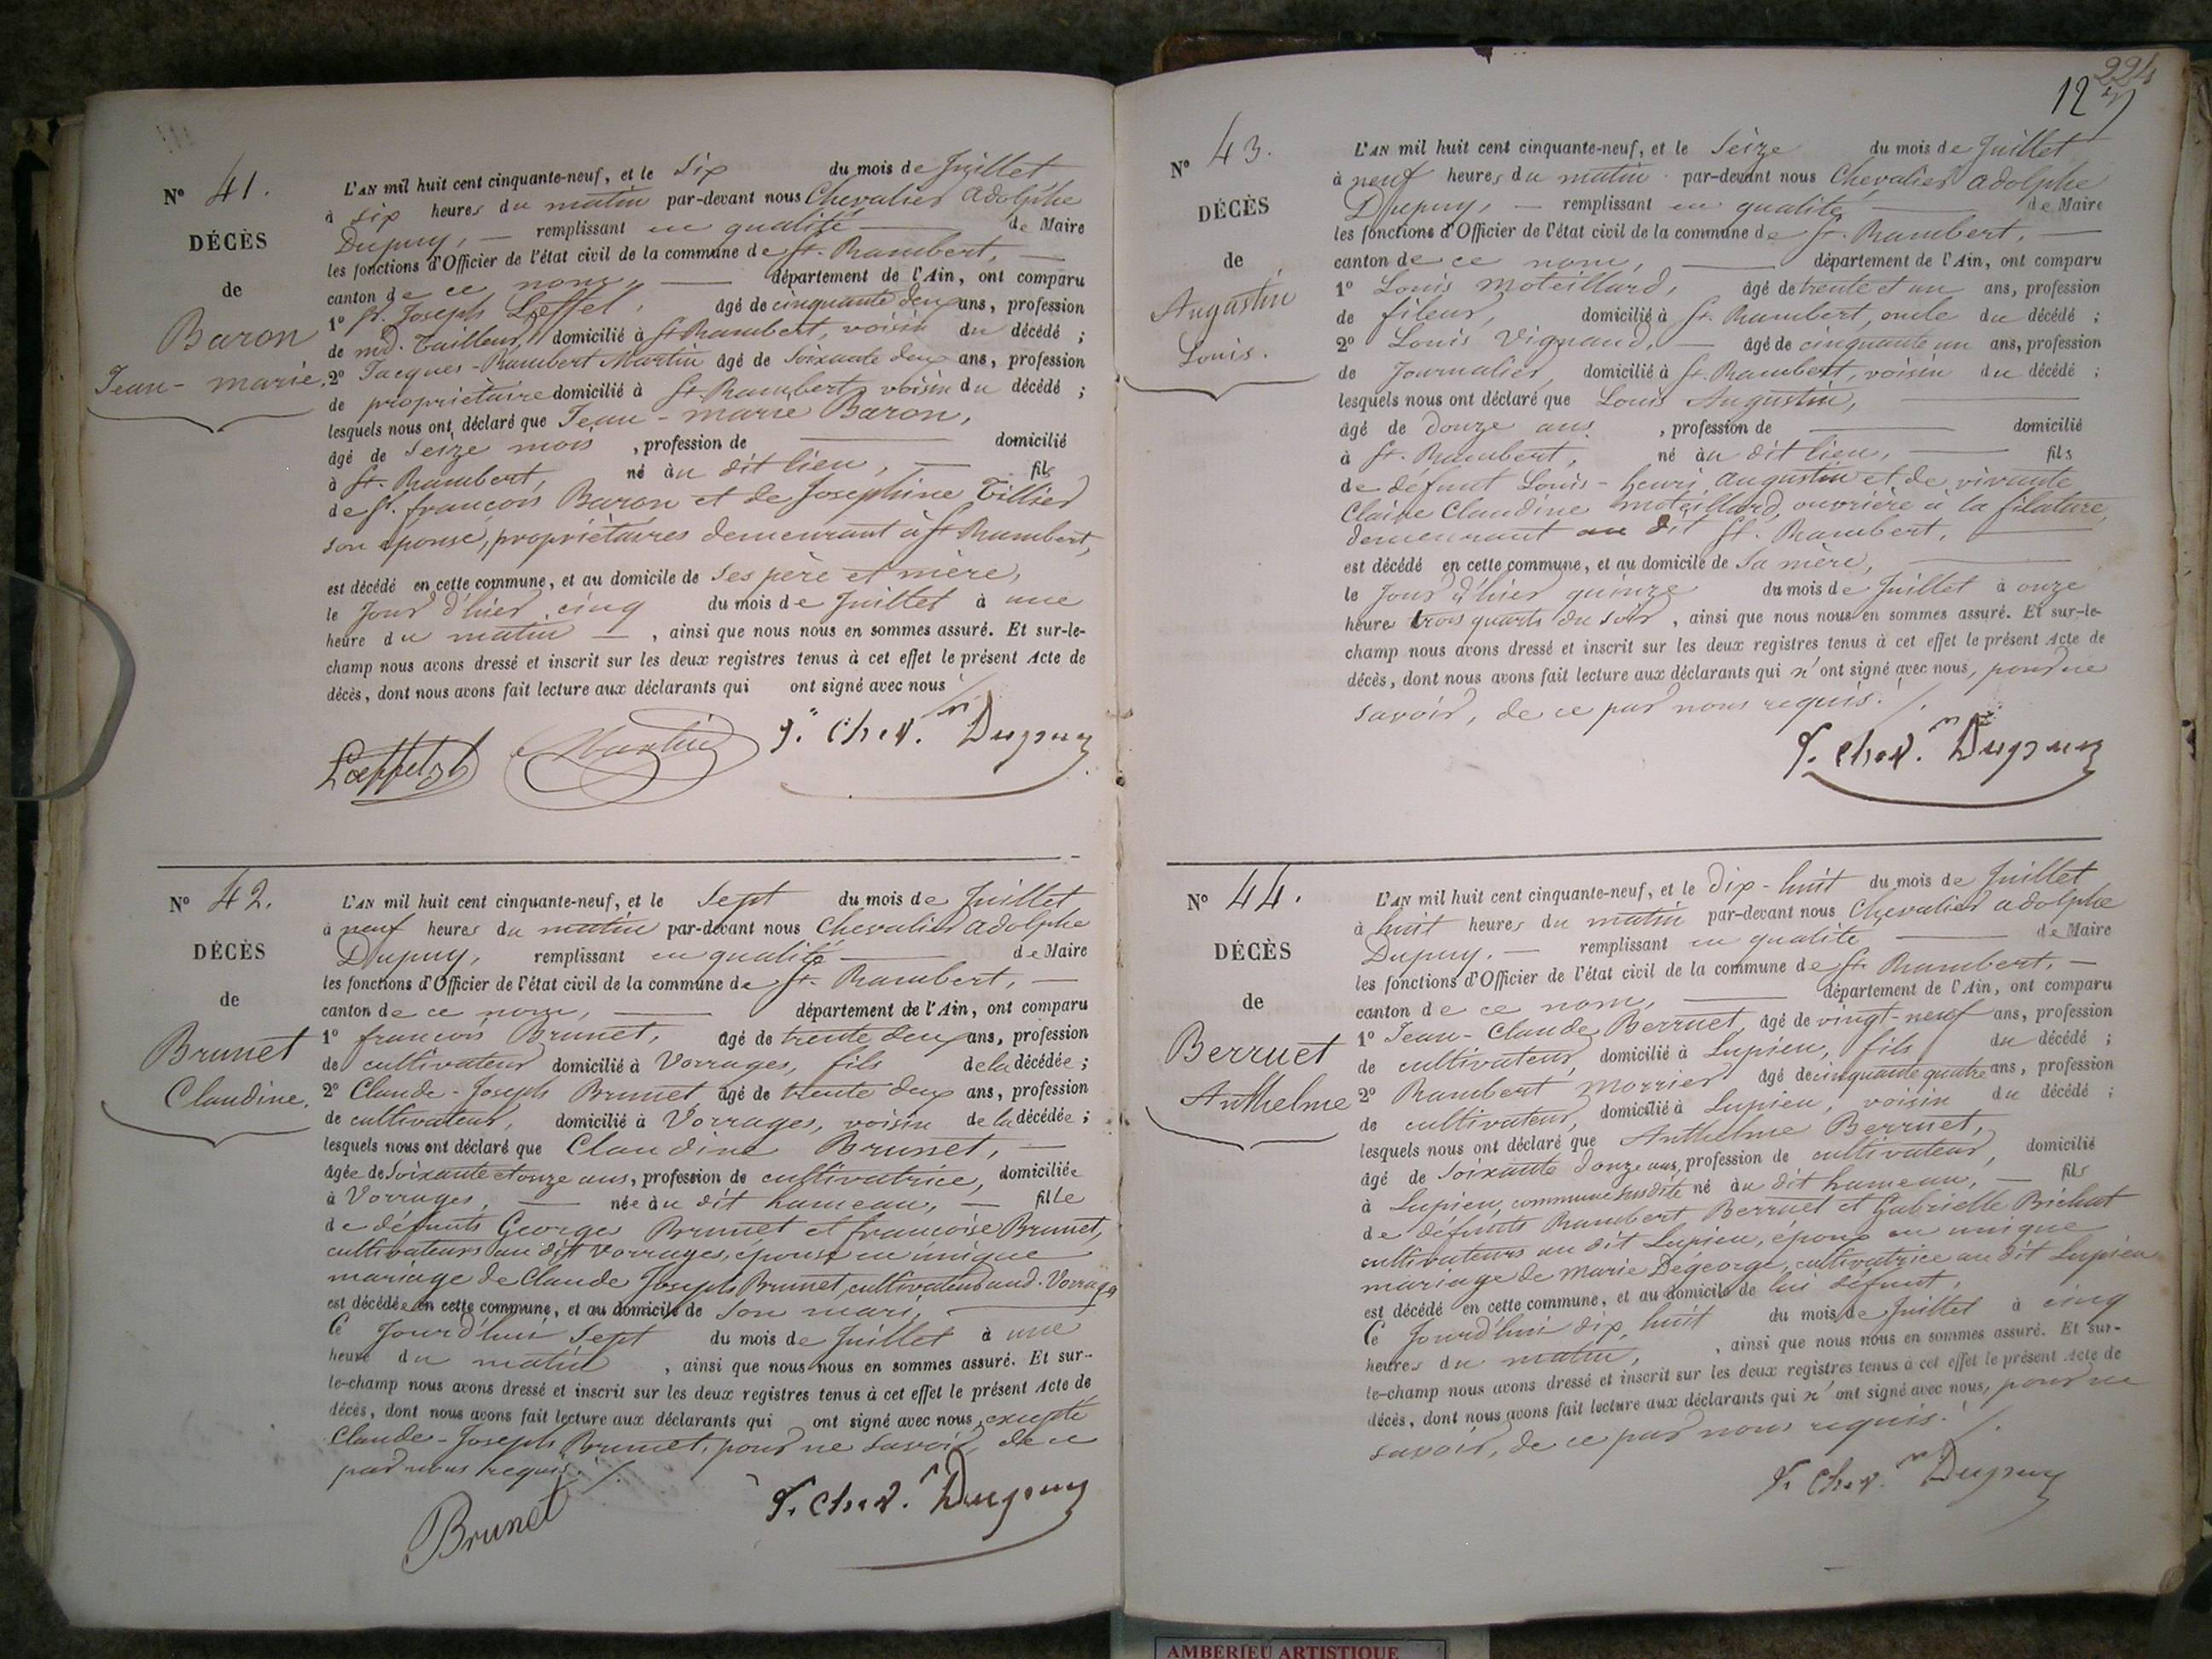 N° 41.
DÉCÈS
de
Baron
Jean-marie.
L'AN mil huit cent cinquante-neuf, et le Six du mois de Juillet
à six heures du matin par-devant nous Chevalier Adolphe
Dupuy, — remplissant en qualité — de Maire
les fonctions d'Officier de l'état civil de la commune de St. Rambert, —
canton de ce nom, — département de l'Ain, ont comparu
1° Sr. Joseph Lœffel, âgé de cinquante deux ans, profession
de md. Tailleur, domicilié à St Rambert, voisin du décédé ;
2° Jacques-Rambert Martin âgé de soixante deux ans, profession
de propriétaire domicilié à St. Rambert, voisin du décédé ;
lesquels nous ont déclaré que Jean-marie Baron,
âgé de seize mois , profession de — domicilié
à St. Rambert, né au dit lieu, — fils
de Sr. françois Baron et de Josephine Tillier
son épouse, propriétaires demeurant à St Rambert,
est décédé en cette commune, et au domicile de ses père et mère,
le Jour d'hier cinq du mois de Juillet à une
heure du matin — , ainsi que nous nous en sommes assuré. Et sur-le-
champ nous avons dressé et inscrit sur les deux registres tenus à cet effet le présent Acte de
décès, dont nous avons fait lecture aux déclarants qui ont signé avec nous ./.
Lœffel Martin Chev. Dupuy
N° 42.
DÉCÈS
de
Brunet
Claudine.
L'AN mil huit cent cinquante-neuf, et le Sept du mois de Juillet
à neuf heures du matin par-devant nous Chevalier Adolphe
Dupuy, remplissant en qualité — de Maire
les fonctions d'Officier de l'état civil de la commune de St. Rambert, —
canton de ce nom, — département de l'Ain, ont comparu
1° francois Brunet, âgé de trente deux ans, profession
de cultivateur domicilié à Vorrages, fils de la décédée ;
2° Claude-Joseph Brunet âgé de trente deux ans, profession
de cultivateur, domicilié à Vorrages, voisin de la décédée ;
lesquels nous ont déclaré que Claudine Brunet, —
âgée de Soixante et onze ans, profession de cultivatrice, domiciliée
à Vorrages, — née au dit hameau, — fille
de défunts Georges Brunet et francoise Brunet,
cultivateurs au dit Vorrages, épouse en unique
mariage de Claude Joseph Brunet, cultivateur aud. Vorrages
est décédée en cette commune, et au domicile de son mari, —
Ce Jourd'hui Sept du mois de Juillet à une
heure du matin , ainsi que nous nous en sommes assuré. Et sur-
le-champ nous avons dressé et inscrit sur les deux registres tenus à cet effet le présent Acte de
décès, dont nous avons fait lecture aux déclarants qui ont signé avec nous, excepté
Claude-Joseph Brunet, pour ne savoir, de ce
par nous requis. /.
Brunet Chev. Dupuy
224
12
N° 43.
DÉCÈS
de
Augustin
Louis.
L'AN mil huit cent cinquante-neuf, et le Seize du mois de Juillet
à neuf heures du matin par-devant nous Chevalier Adolphe
Dupuy, — remplissant en qualité — de Maire
les fonctions d'Officier de l'état civil de la commune de St. Rambert, —
canton de ce nom, — département de l'Ain, ont comparu
1° Louis Moteillard, âgé de trente et un ans, profession
de fileur, domicilié à St. Rambert, oncle du décédé ;
2° Louis Vignand, — âgé de cinquante un ans, profession
de Journalier, domicilié à St. Rambert, voisin du décédé ;
lesquels nous ont déclaré que Louis Augustin, —
âgé de douze ans , profession de — domicilié
à St. Rambert, né au dit lieu, — fils
de défunt Louis-henri Augustin et de vivante
Claire Claudine Moteillard, ouvrière à la filature,
demeurant au dit St. Rambert, —
est décédé en cette commune, et au domicile de Sa mère, —
le Jour d'hier quinze du mois de Juillet à onze
heures trois quarts du soir , ainsi que nous nous en sommes assuré. Et sur-le-
champ nous avons dressé et inscrit sur les deux registres tenus à cet effet le présent Acte de
décès, dont nous avons fait lecture aux déclarants qui n'ont signé avec nous, pour ne
savoir, de ce par nous requis. /.
Chev. Dupuy
N° 44.
DÉCÈS
de
Berruet
Anthelme
L'AN mil huit cent cinquante-neuf, et le Dix-huit du mois de Juillet
à huit heures du matin par-devant nous Chevalier Adolphe
Dupuy. — remplissant en qualité — de Maire
les fonctions d'Officier de l'état civil de la commune de St. Rambert. —
canton de ce nom, — département de l'Ain, ont comparu
1° Jean-Claude Berruet, âgé de vingt-neuf ans, profession
de cultivateur, domicilié à Lupieu, fils du décédé ;
2° Rambert Morrier âgé de cinquante quatre ans, profession
de cultivateur, domicilié à Lupieu, voisin du décédé ;
lesquels nous ont déclaré que Anthelme Berruet,
âgé de Soixante douze ans, profession de cultivateur, domicilié
à Lupieu, commune susdite né au dit hameau, — fils
de défunts Rambert Berruet et Gabrielle Brichat
cultivateurs au dit Lupieu, époux en unique
mariage de Marie Dégeorge, cultivatrice au dit Lupieu
est décédé en cette commune, et au domicile de lui défunt,
Ce Jourd'hui dix huit du mois de Juillet à cinq
heures du matin, , ainsi que nous nous en sommes assuré. Et sur-
le-champ nous avons dressé et inscrit sur les deux registres tenus à cet effet le présent Acte de
décès, dont nous avons fait lecture aux déclarants qui n'ont signé avec nous, pour ne
savoir, de ce par nous requis. /.
Chev. Dupuy
AMBERIEU ARTISTIQUE